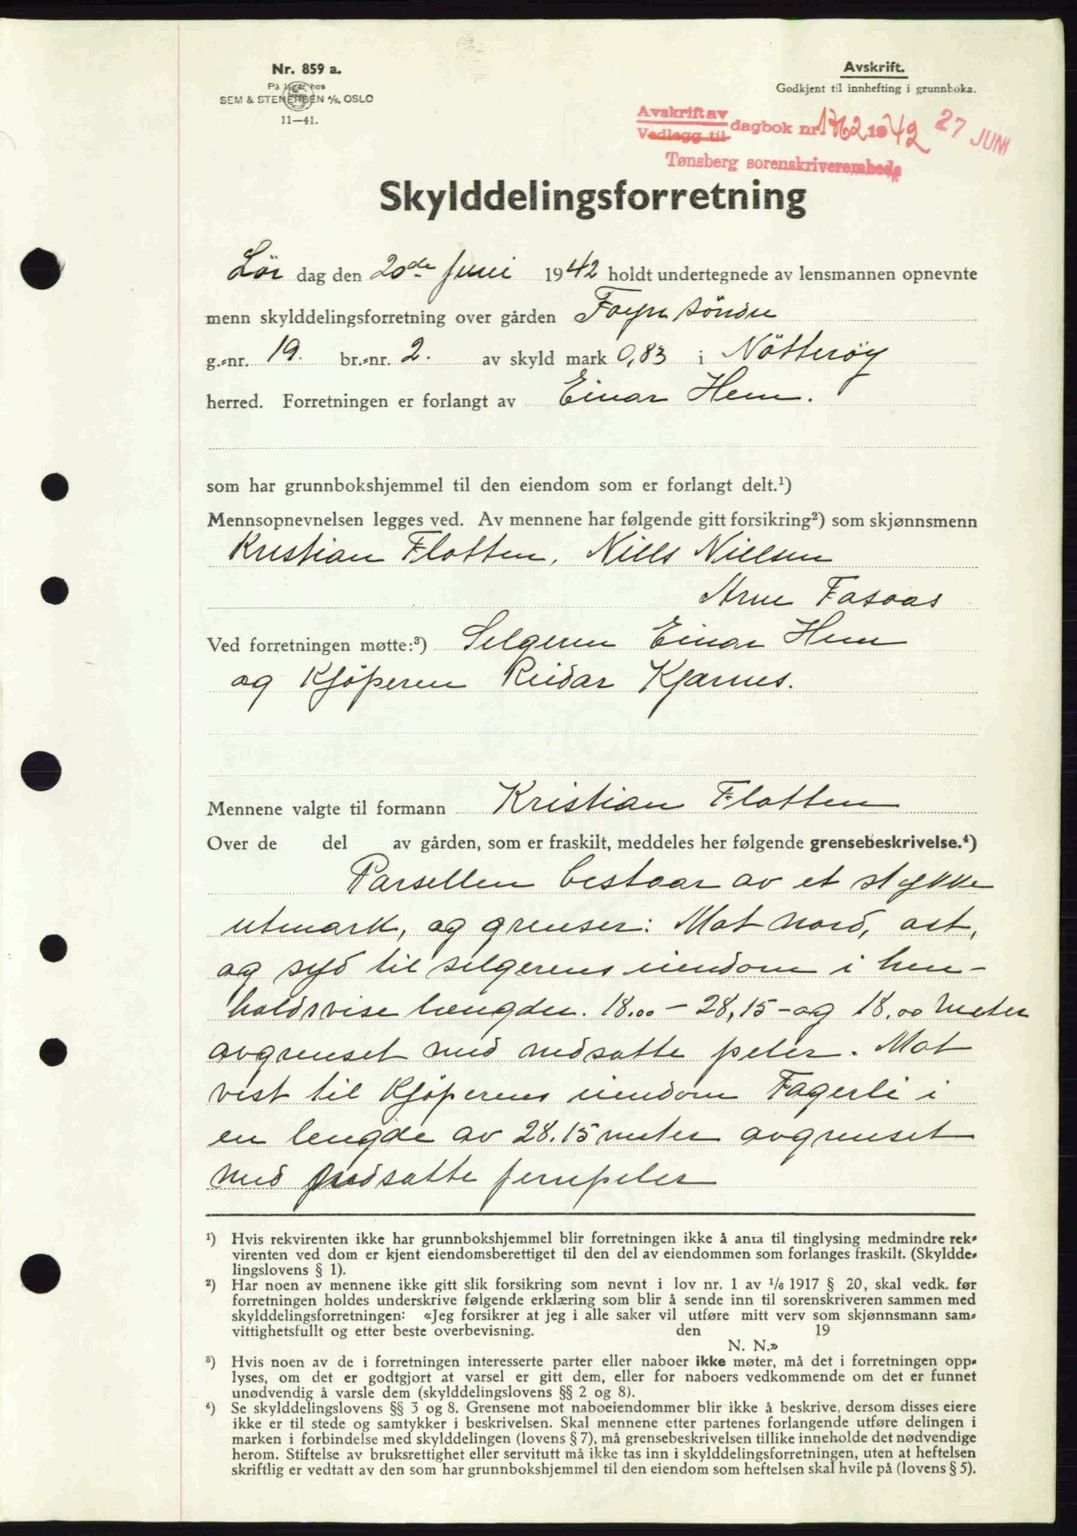 Nr. 859 a.
På lager hos
SEM & STENERSEN A/S, OSLO
11—41.
Avskrift.
Godkjent til innhefting i grunnboka.
Avskrift av
Vedlegg til dagbok nr. 1762 1942 27 JUNI
Tønsberg sorenskriverembede
Skylddelingsforretning
Lör dag den 20de Juni 1942 holdt undertegnede av lensmannen opnevnte
menn skylddelingsforretning over gården Foyn söndre
g.-nr. 19. br.-nr. 2. av skyld mark 0,83 i Nötteröy
herred. Forretningen er forlangt av Einar Hem.
som har grunnbokshjemmel til den eiendom som er forlangt delt.¹)
Mennsopnevnelsen legges ved. Av mennene har følgende gitt forsikring²) som skjønnsmenn
Kristian Flotten, Niels Nielsen
Arne Fasoas
Ved forretningen møtte:³) Selgeren Einar Hem
og Kjöperen Reidar Kjarnes.
Mennene valgte til formann Kristian Flatten
Over de del av gården, som er fraskilt, meddeles her følgende grensebeskrivelse.⁴)
Parsellen bestaar av et stykke
utmark, og grenser: Mot nord, ost,
og syd til selgerens eiendom i hen-
holdsvise længder. 18.00 - 28,15 - og 18.00 meter
avgrenset med nedsatte peler. Mot
vest til Kjöperens eiendom Fagerli i
en lengde av 28.15 meter avgrenset
med nedsatte jernpeler
¹) Hvis rekvirenten ikke har grunnbokshjemmel blir forretningen ikke å anta til tinglysing medmindre rek-
virenten ved dom er kjent eiendomsberettiget til den del av eiendommen som forlanges fraskilt. (Skyldde-
lingslovens § 1).
²) Har noen av mennene ikke gitt slik forsikring som nevnt i lov nr. 1 av 1/6 1917 § 20, skal vedk. før
forretningen holdes underskrive følgende erklæring som blir å sende inn til sorenskriveren sammen med
skylddelingsforretningen: «Jeg forsikrer at jeg i alle saker vil utføre mitt verv som skjønnsmann sam-
vittighetsfullt og etter beste overbevisning. den 19
N. N.»
³) Hvis noen av de i forretningen interesserte parter eller naboer ikke møter, må det i forretningen opp-
lyses, om det er godtgjort at varsel er gitt dem, eller for naboers vedkommende om det er funnet
unødvendig å varsle dem (skylddelingslovens §§ 2 og 8).
⁴) Se skylddelingslovens §§ 3 og 8. Grensene mot naboeiendommer blir ikke å beskrive, dersom disses eiere
ikke er til stede og samtykker i beskrivelsen. Skal mennene etter partenes forlangende utføre delingen i
marken i forbindelse med skylddelingen (lovens § 7), må grensebeskrivelsen tillike inneholde det nødvendige
herom. Stiftelse av bruksrettighet eller servitutt må ikke tas inn i skylddelingsforretningen, uten at heftelsen
skriftlig er vedtatt av den som har grunnbokshjemmel til den eiendom som heftelsen skal hvile på (lovens § 5).